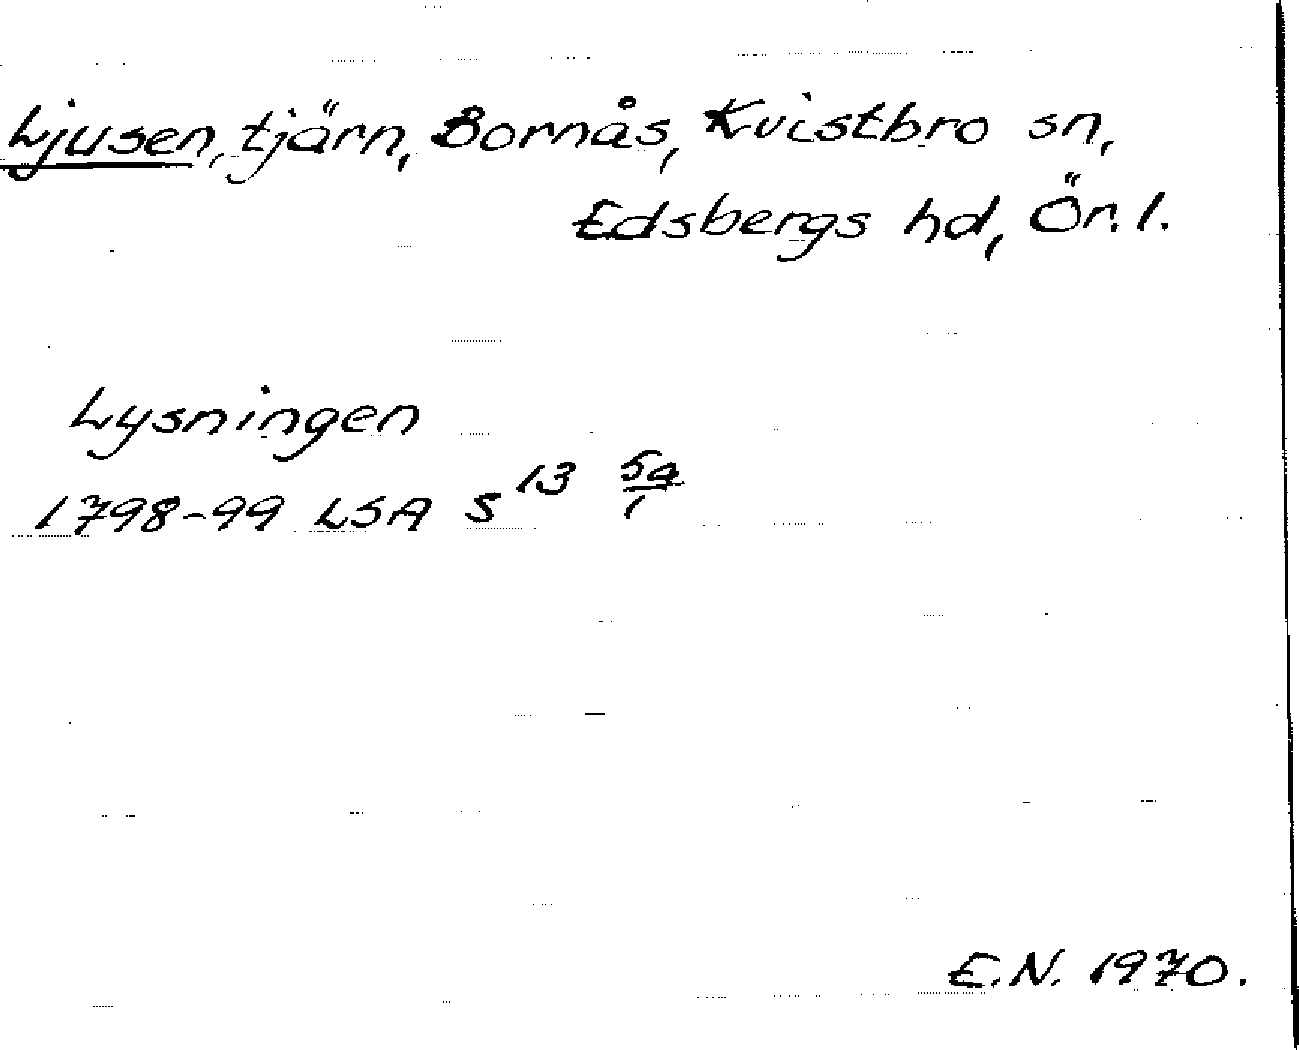 Ljusen, tjärn, Bornås, Kvistbro sn,
Edsbergs hd, Ör. l.
Lysningen
1798-99 LSA S 13 5a/1
E.N. 1970.